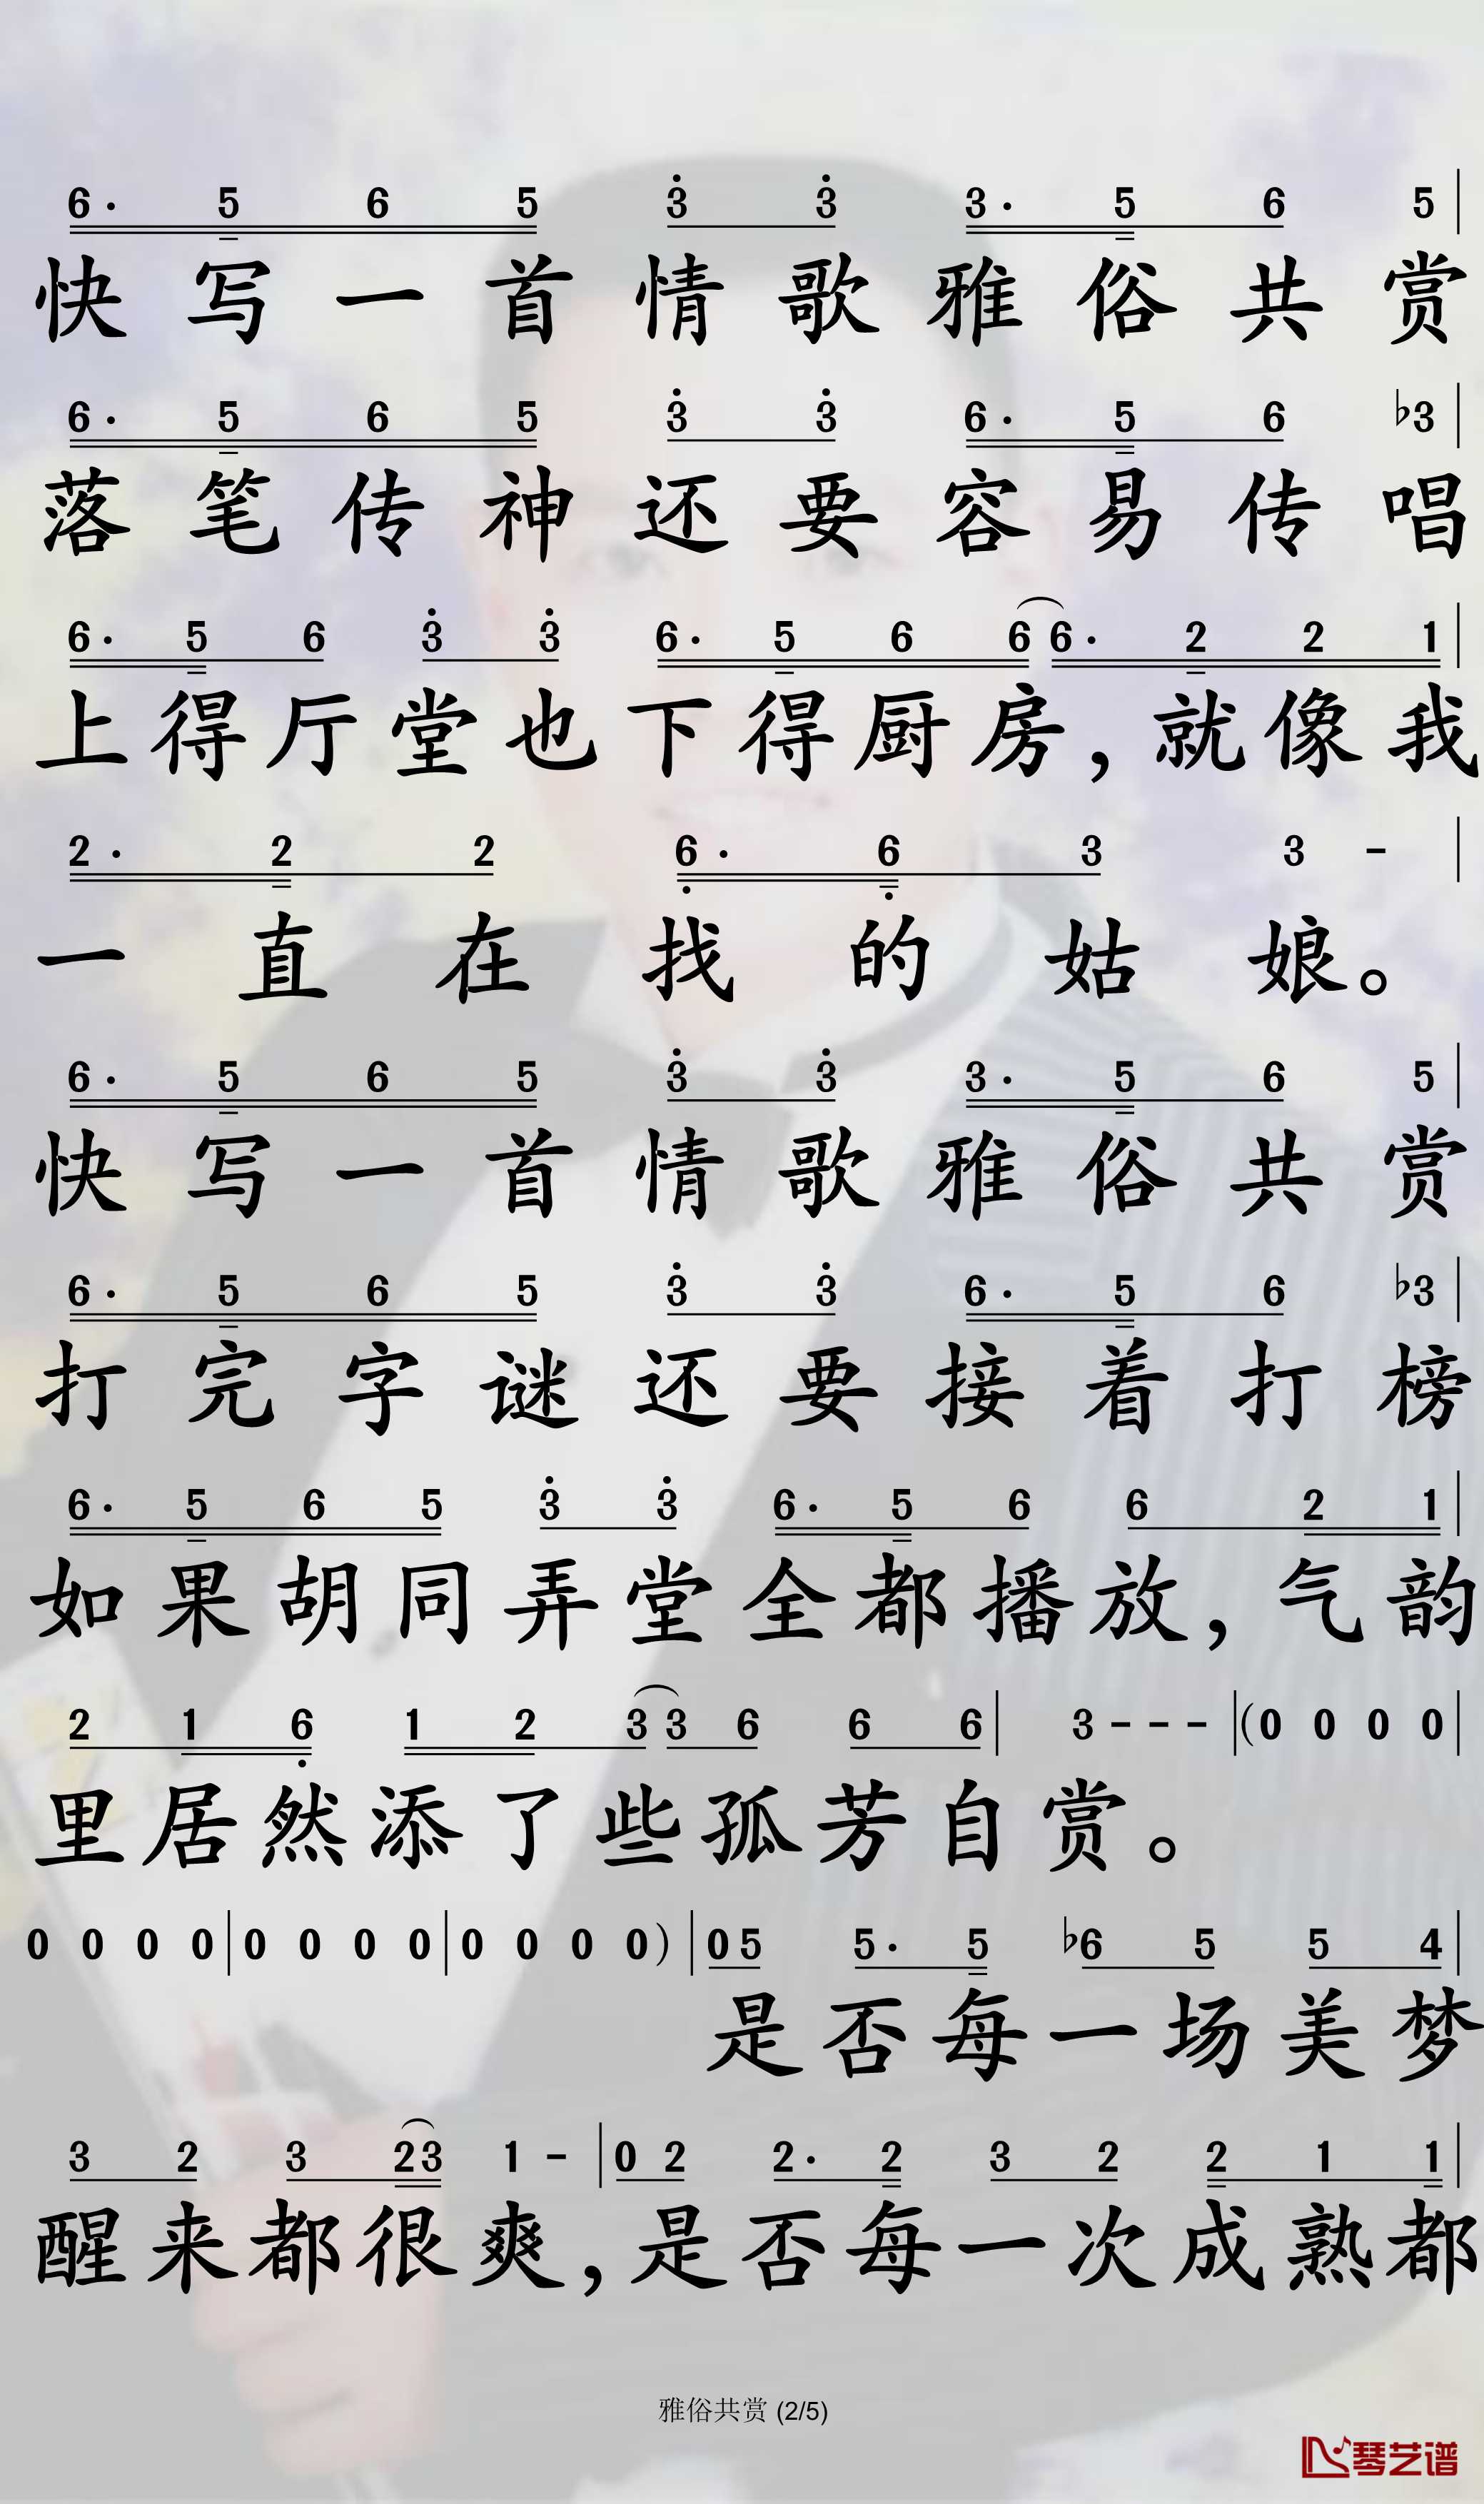 6· 5 6 5 3̇ 3̇ 3· 5 6 5 |
快写一首情歌雅俗共赏
6· 5 6 5 3̇ 3̇ 6· 5 6 ♭3 |
落笔传神还要容易传唱
6· 5 6 3̇ 3̇ 6· 5 6 6 6· 2 2 1 |
上得厅堂也下得厨房，就像我
2· 2 2 6̣· 6̣ 3 3 - |
一直在找的姑娘。
6· 5 6 5 3̇ 3̇ 3· 5 6 5 |
快写一首情歌雅俗共赏
6· 5 6 5 3̇ 3̇ 6· 5 6 ♭3 |
打完字谜还要接着打榜
6· 5 6 5 3̇ 3̇ 6· 5 6 6 2 1 |
如果胡同弄堂全都播放，气韵
2 1 6̣ 1 2 3 3 6 6 6 | 3 - - - | (0 0 0 0 |
里居然添了些孤芳自赏。
0 0 0 0 | 0 0 0 0 | 0 0 0 0) | 0 5 5· 5 ♭6 5 5 4 |
是否每一场美梦
3 2 3 2 3 1 - | 0 2 2· 2 3 2 2 1 1 |
醒来都很爽，是否每一次成熟都
雅俗共赏 (2/5)
琴艺谱